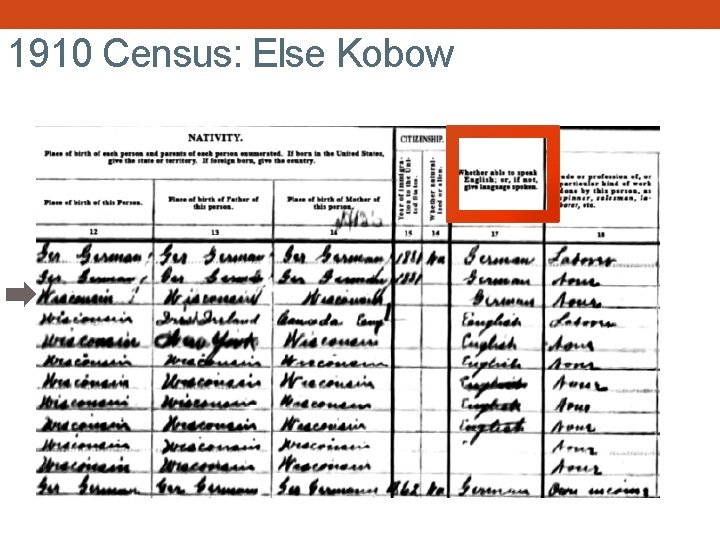 1910 Census: Else Kobow
NATIVITY.
CITIZENSHIP.
Place of birth of each person and parents of each person enumerated. If born in the United States,
give the state or territory. If foreign born, give the country.
Place of birth of this Person.
Place of birth of Father of
this person.
Place of birth of Mother of
this person.
Year of immigra-
tion to the Uni-
ted States.
Whether natural-
ized or alien.
Whether able to speak
English; or, if not,
give language spoken.
ade or profession of, or
particular kind of work
done by this person, as
spinner, salesman, la-
borer, etc.
12 13 14 15 16 17 18
Ger German Ger German Ger German 1881 Na German Laborer
Ger German Ger German Ger German 1881 German None
Wisconsin Wisconsin Wisconsin German None
Wisconsin Ireland Canada Eng English Laborer
Wisconsin New York Wisconsin English None
Wisconsin Wisconsin Wisconsin English None
Wisconsin Wisconsin Wisconsin English None
Wisconsin Wisconsin Wisconsin English None
Wisconsin Wisconsin Wisconsin English None
Wisconsin Wisconsin Wisconsin None
Wisconsin Wisconsin Wisconsin None
Ger German Ger German Ger German 1862 Na German Own income